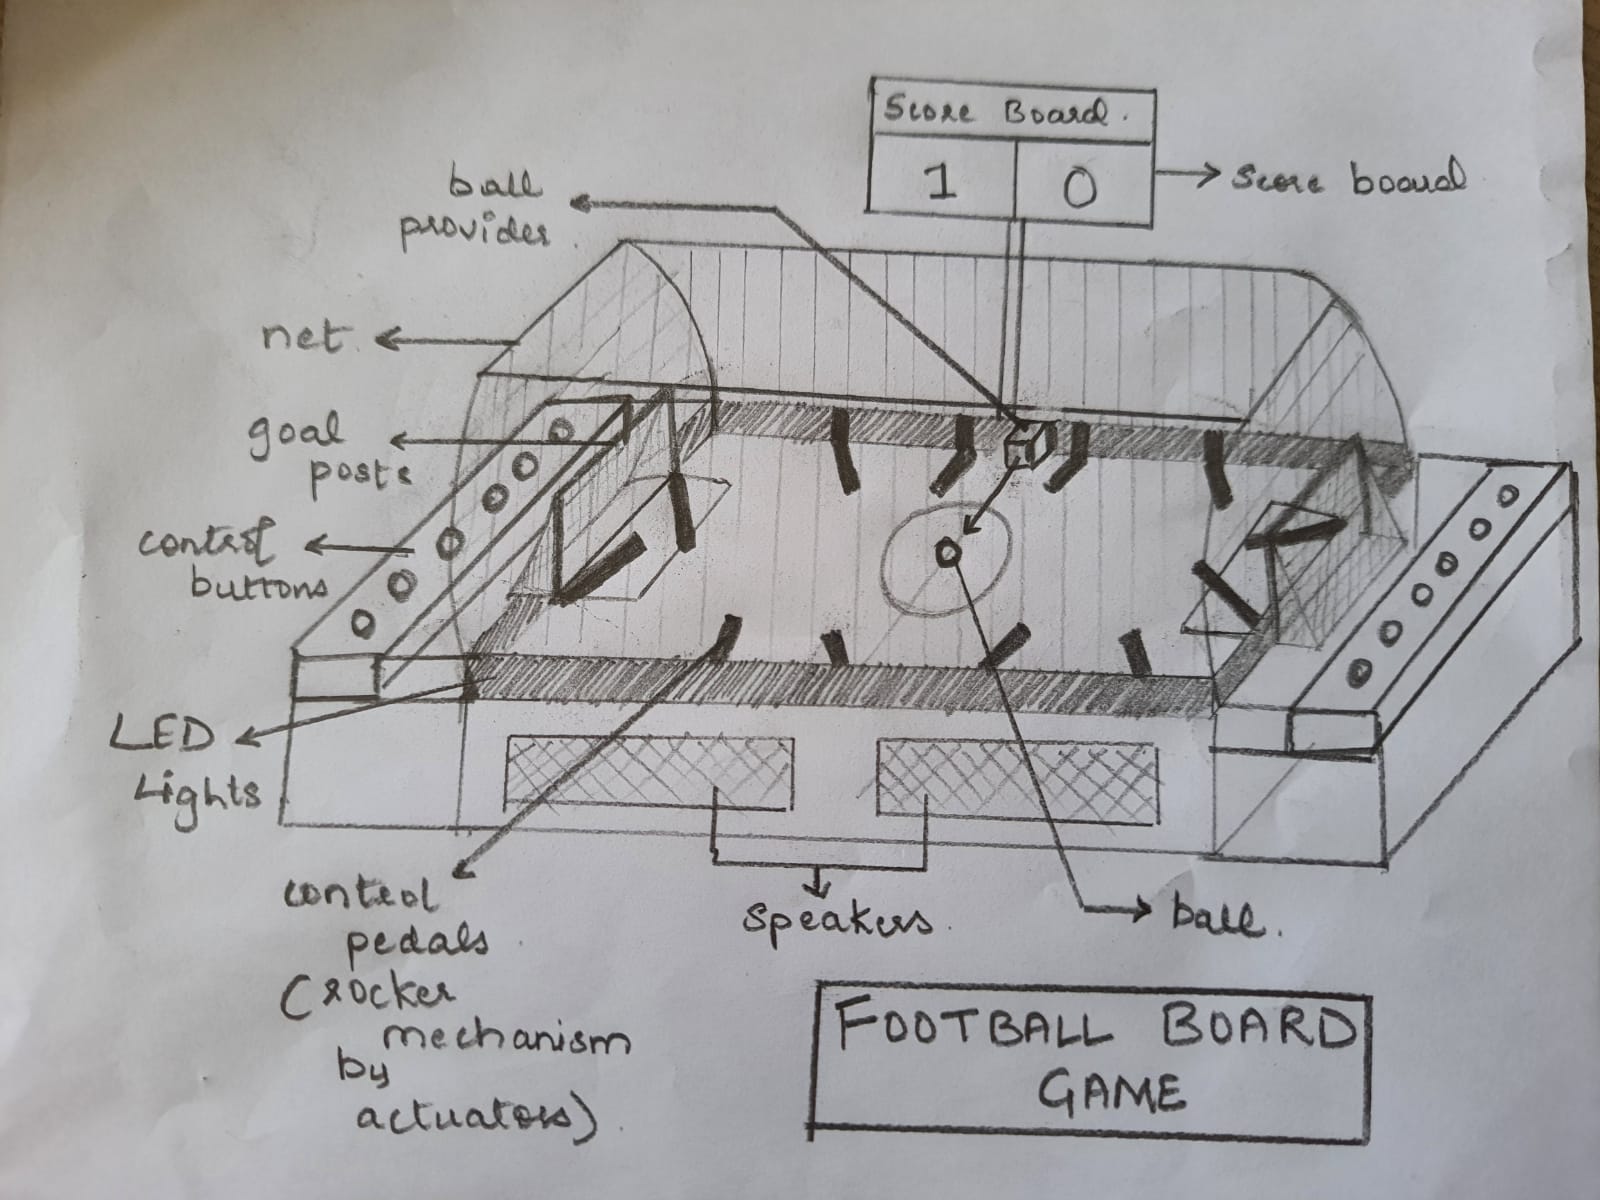 Score Board.
1 0
Score board
ball
provider.
net
goal
posts
control
buttons
LED
Lights
control
pedals
(rocker
mechanism
by
actuators).
Speakers.
ball.
FOOTBALL BOARD
GAME